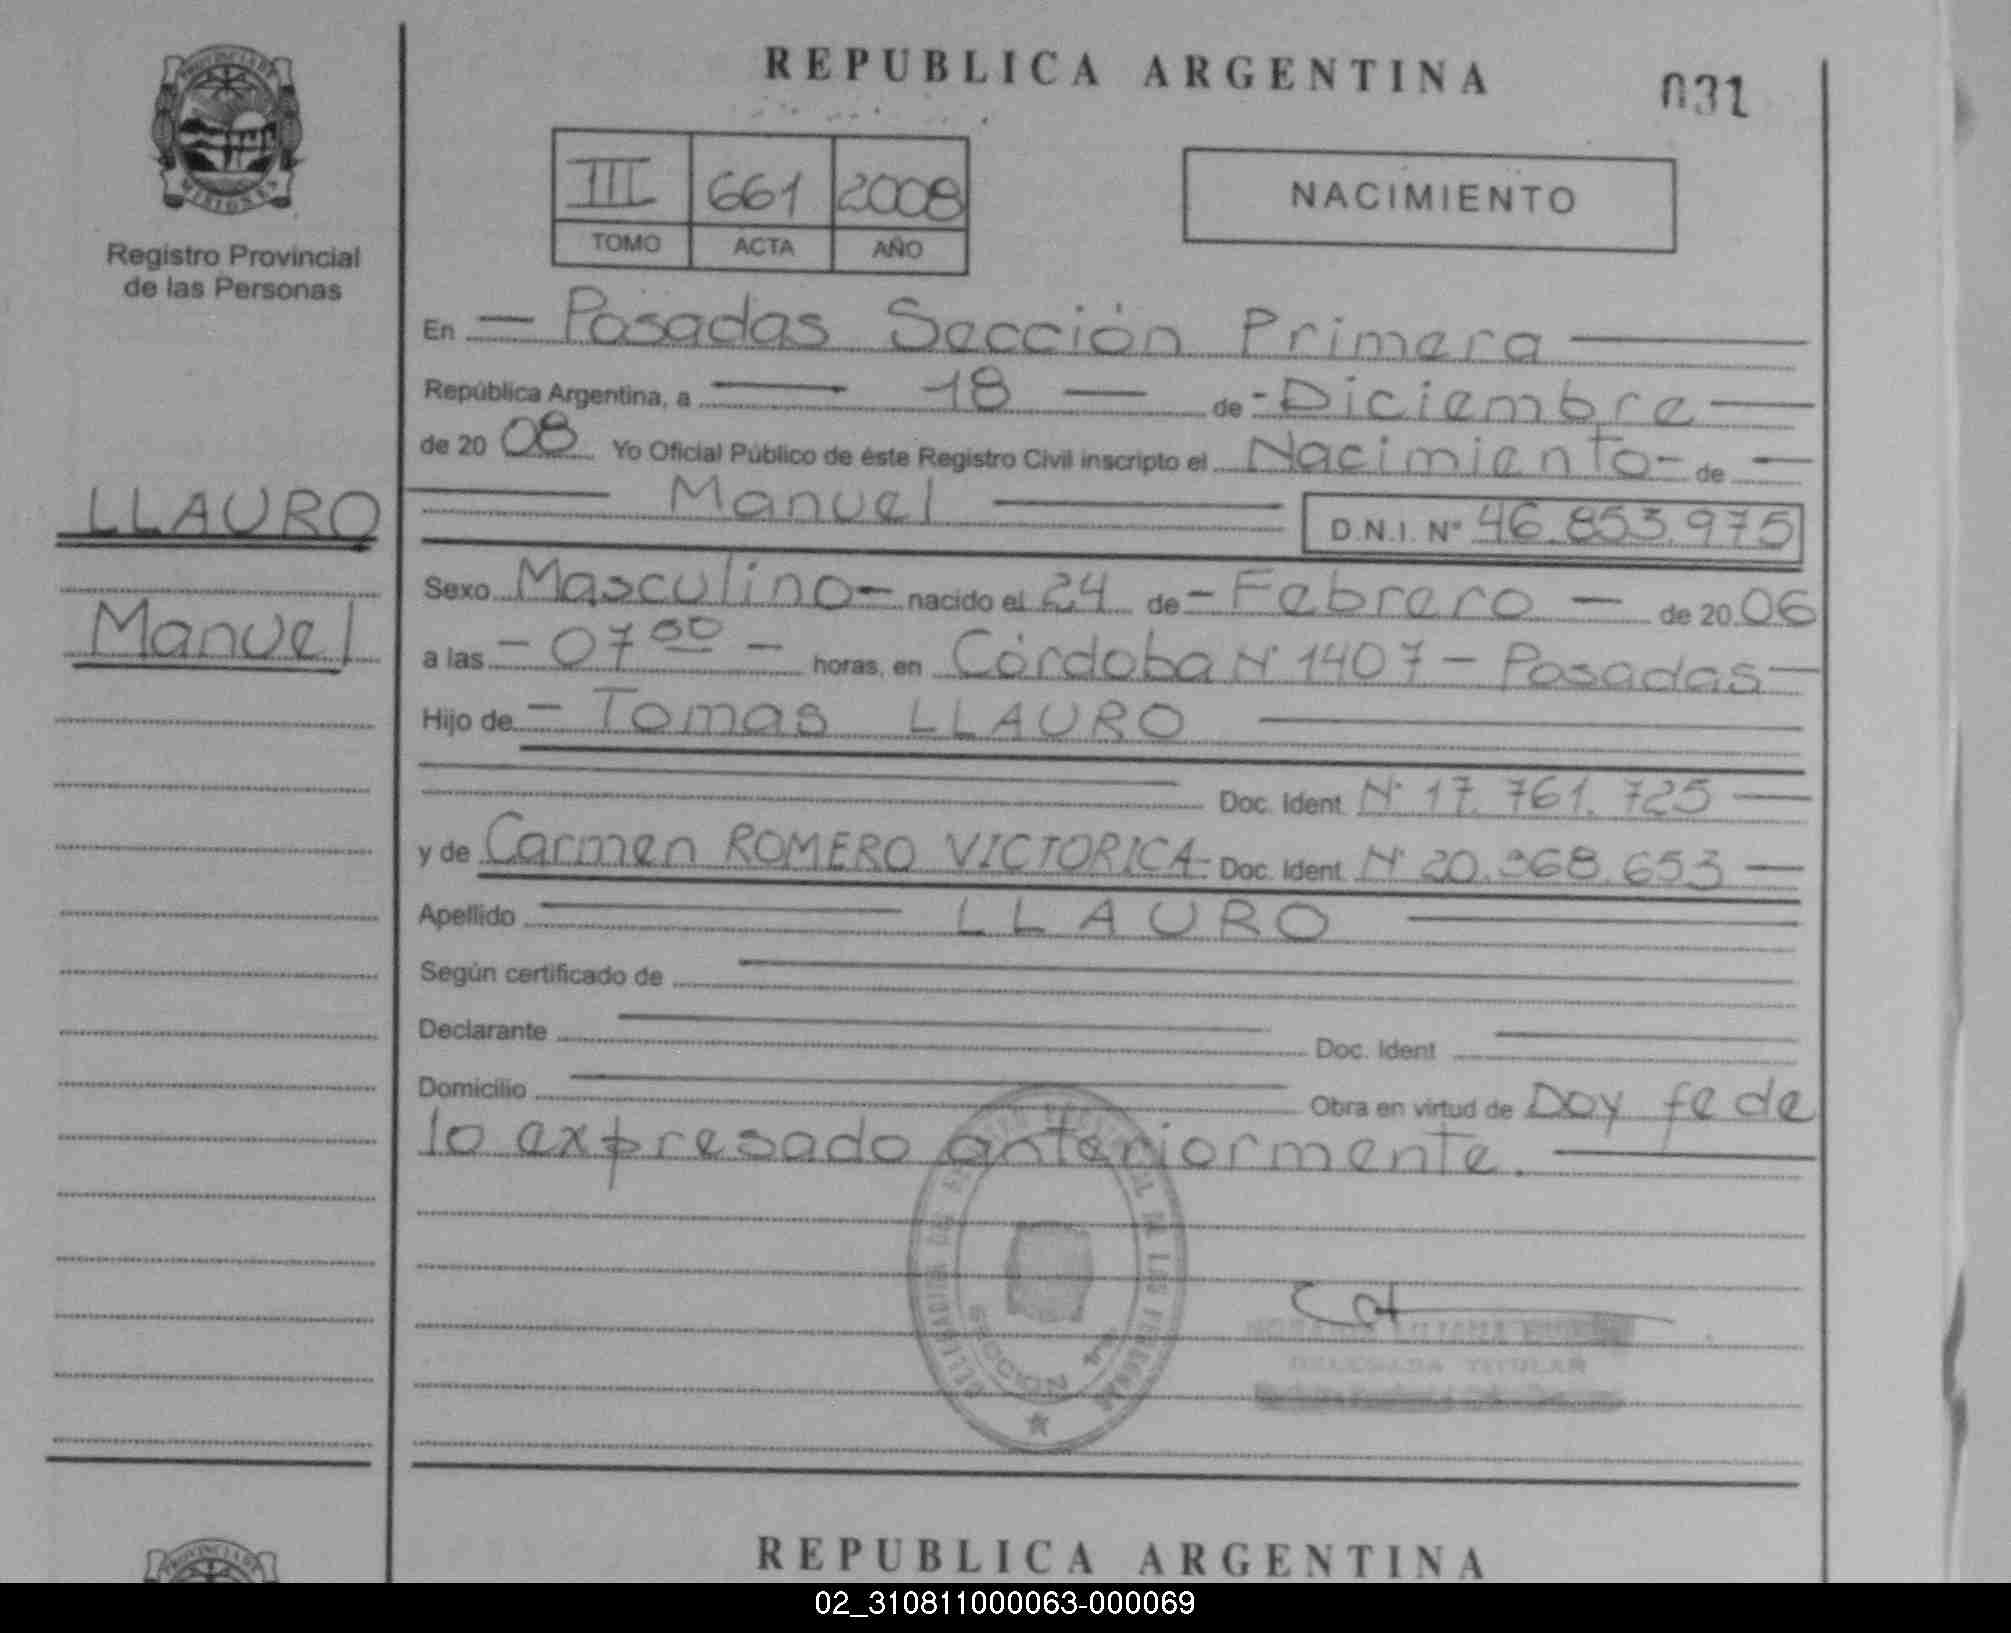 REPUBLICA ARGENTINA
031
PROVINCIA DE
MISIONES
Registro Provincial
de las Personas
III 661 2008
TOMO ACTA AÑO
NACIMIENTO
En — Posadas Sección Primera —
República Argentina, a — 18 — de - Diciembre —
de 20 08 Yo Oficial Público de éste Registro Civil inscripto el Nacimiento - de —
LLAURO
— Manuel — D.N.I. N° 46.853.975
Manuel
Sexo Masculino - nacido el 24 de - Febrero — de 20 06
a las - 07 00 - horas, en Córdoba N° 1407 - Posadas -
Hijo de - Tomas LLAURO —
— Doc. Ident. N° 17.761.725 —
y de Carmen ROMERO VICTORICA - Doc. Ident. N° 20.368.653 —
Apellido — LLAURO —
Según certificado de —
Declarante — Doc. Ident —
Domicilio — Obra en virtud de Doy fe de
lo expresado anteriormente. —
DE LAS PERSONAS
SECCION 1ra
DELEGADA TITULAR
PROVINCIA DE
REPUBLICA ARGENTINA
02_310811000063-000069